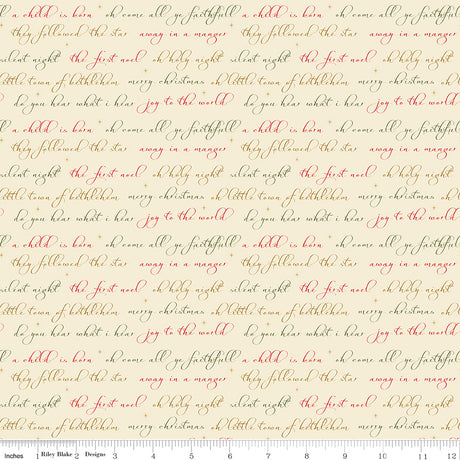 a child is born oh come all ye faithfull a child is born oh come all ye faithfull
they followed the star away in a manger they followed the star away in a manger
silent night the first noel oh holy night silent night the first noel oh holy night
little town of bethlehem merry christmas oh little town of bethlehem merry christmas
do you hear what i hear joy to the world do you hear what i hear joy to the world
a child is born oh come all ye faithfull a child is born oh come all ye faithfull
they followed the star away in a manger they followed the star away in a manger
silent night the first noel oh holy night silent night the first noel oh holy night
little town of bethlehem merry christmas oh little town of bethlehem merry christmas
do you hear what i hear joy to the world do you hear what i hear joy to the world
a child is born oh come all ye faithfull a child is born oh come all ye faithfull
they followed the star away in a manger they followed the star away in a manger
silent night the first noel oh holy night silent night the first noel oh holy night
little town of bethlehem merry christmas oh little town of bethlehem merry christmas
do you hear what i hear joy to the world do you hear what i hear joy to the world
a child is born oh come all ye faithfull a child is born oh come all ye faithfull
they followed the star away in a manger they followed the star away in a manger
silent night the first noel oh holy night silent night the first noel oh holy night
little town of bethlehem merry christmas oh little town of bethlehem merry christmas
Inches Riley Blake 2 Designs 3 4 5 6 7 8 9 10 11 12